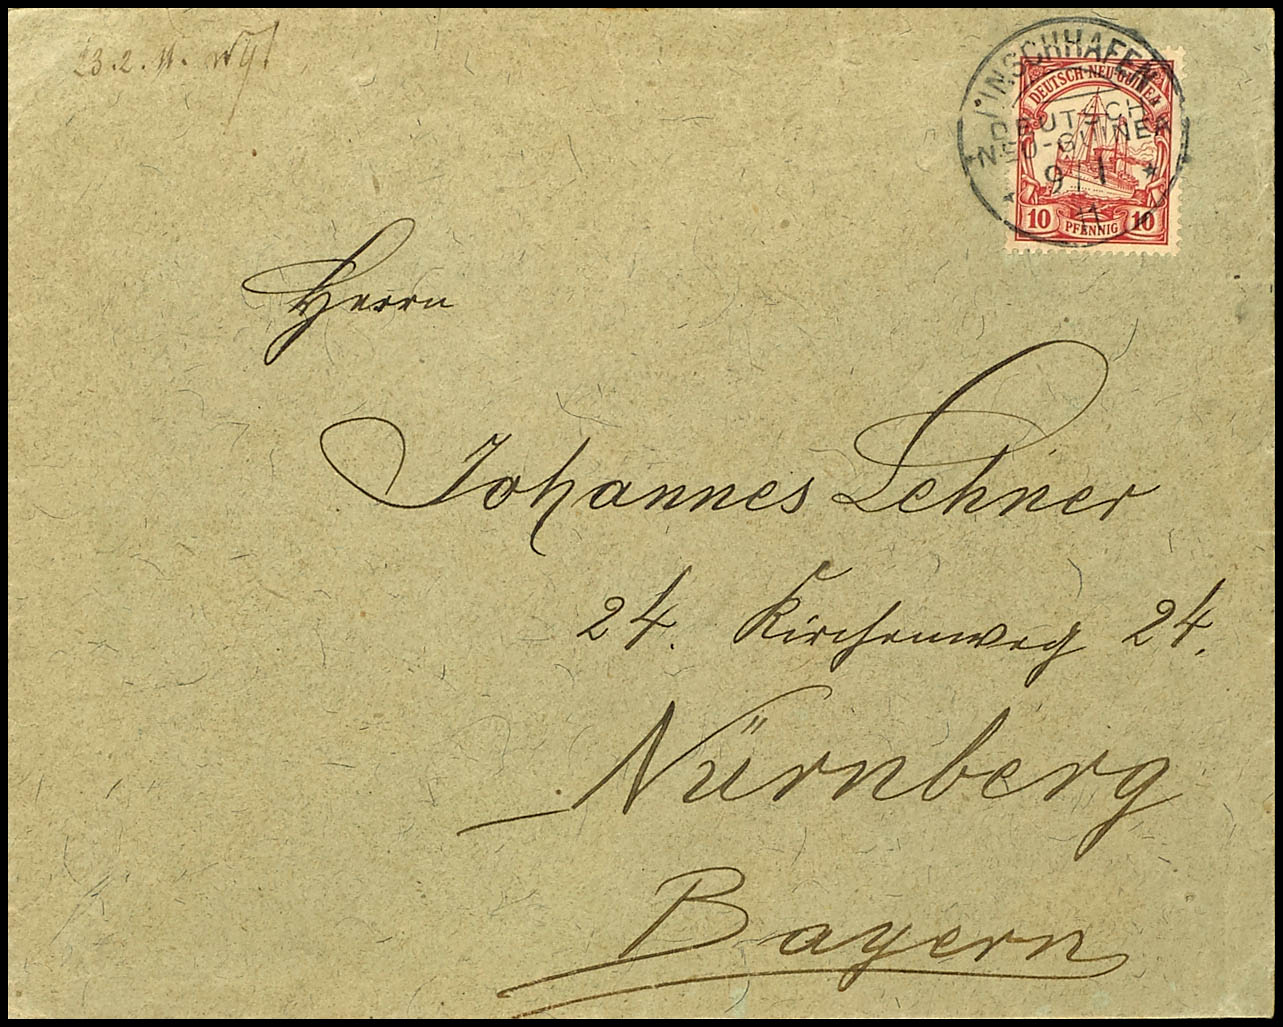 23.2.11.
FINSCHHAFEN
DEUTSCH-
NEU-GUINEA
9 1
11
DEUTSCH-NEU-GUINEA
10 PFENNIG 10
Herrn
Johannes Lehner
24. Kirchenweg 24.
Nürnberg
Bayern